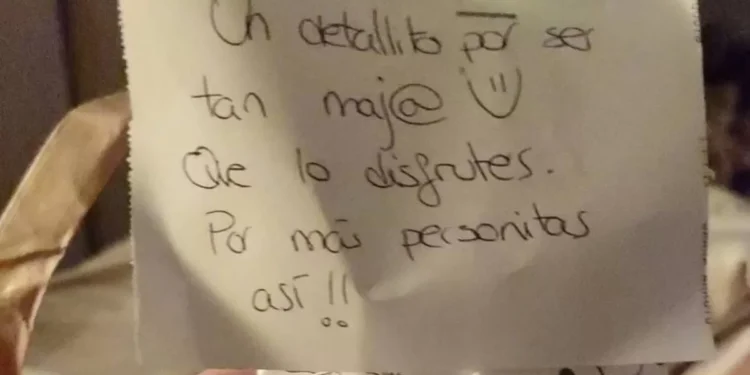 Un detallito por ser
tan maj@
Que lo disfrutes.
Por más personitas
así!!